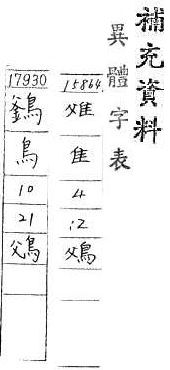 補充資料
異體字表
15864
隹
4
12
17930
鳥
10
21